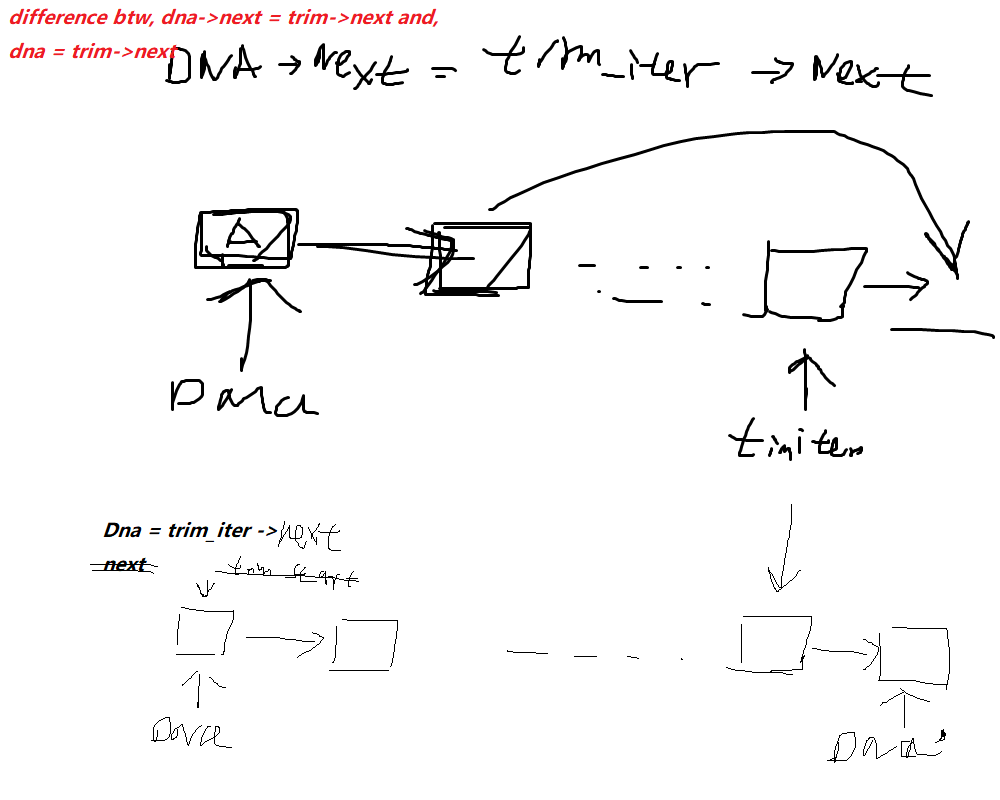 difference btw, dna->next = trim->next and,
dna = trim->next
DNA → Next = trim_iter → Next
A
Dna = trim_iter -> next
next
trim start